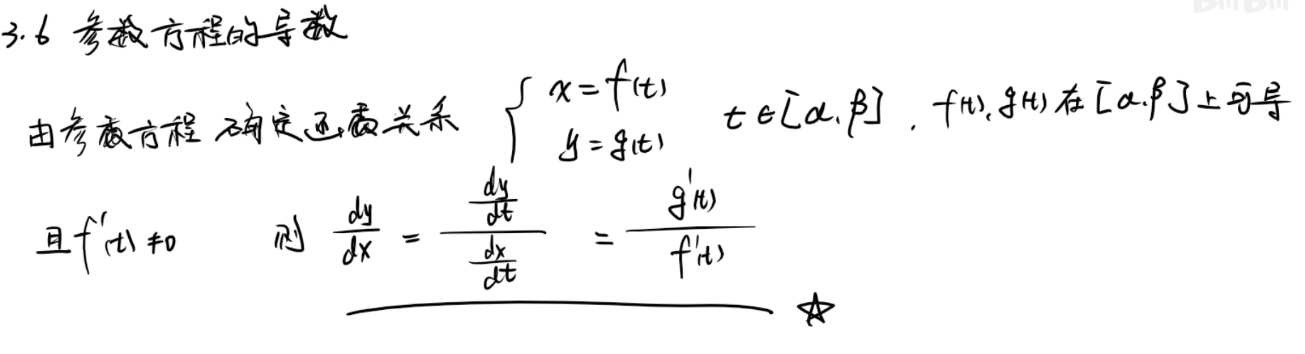 3.6 参数方程的导数
由参数方程确定函数关系 { x=f(t) y=g(t) t∈[α,β], f(t),g(t)在[α,β]上可导
且f'(t)≠0 则 dy/dx = (dy/dt)/(dx/dt) = g'(t)/f'(t) ☆